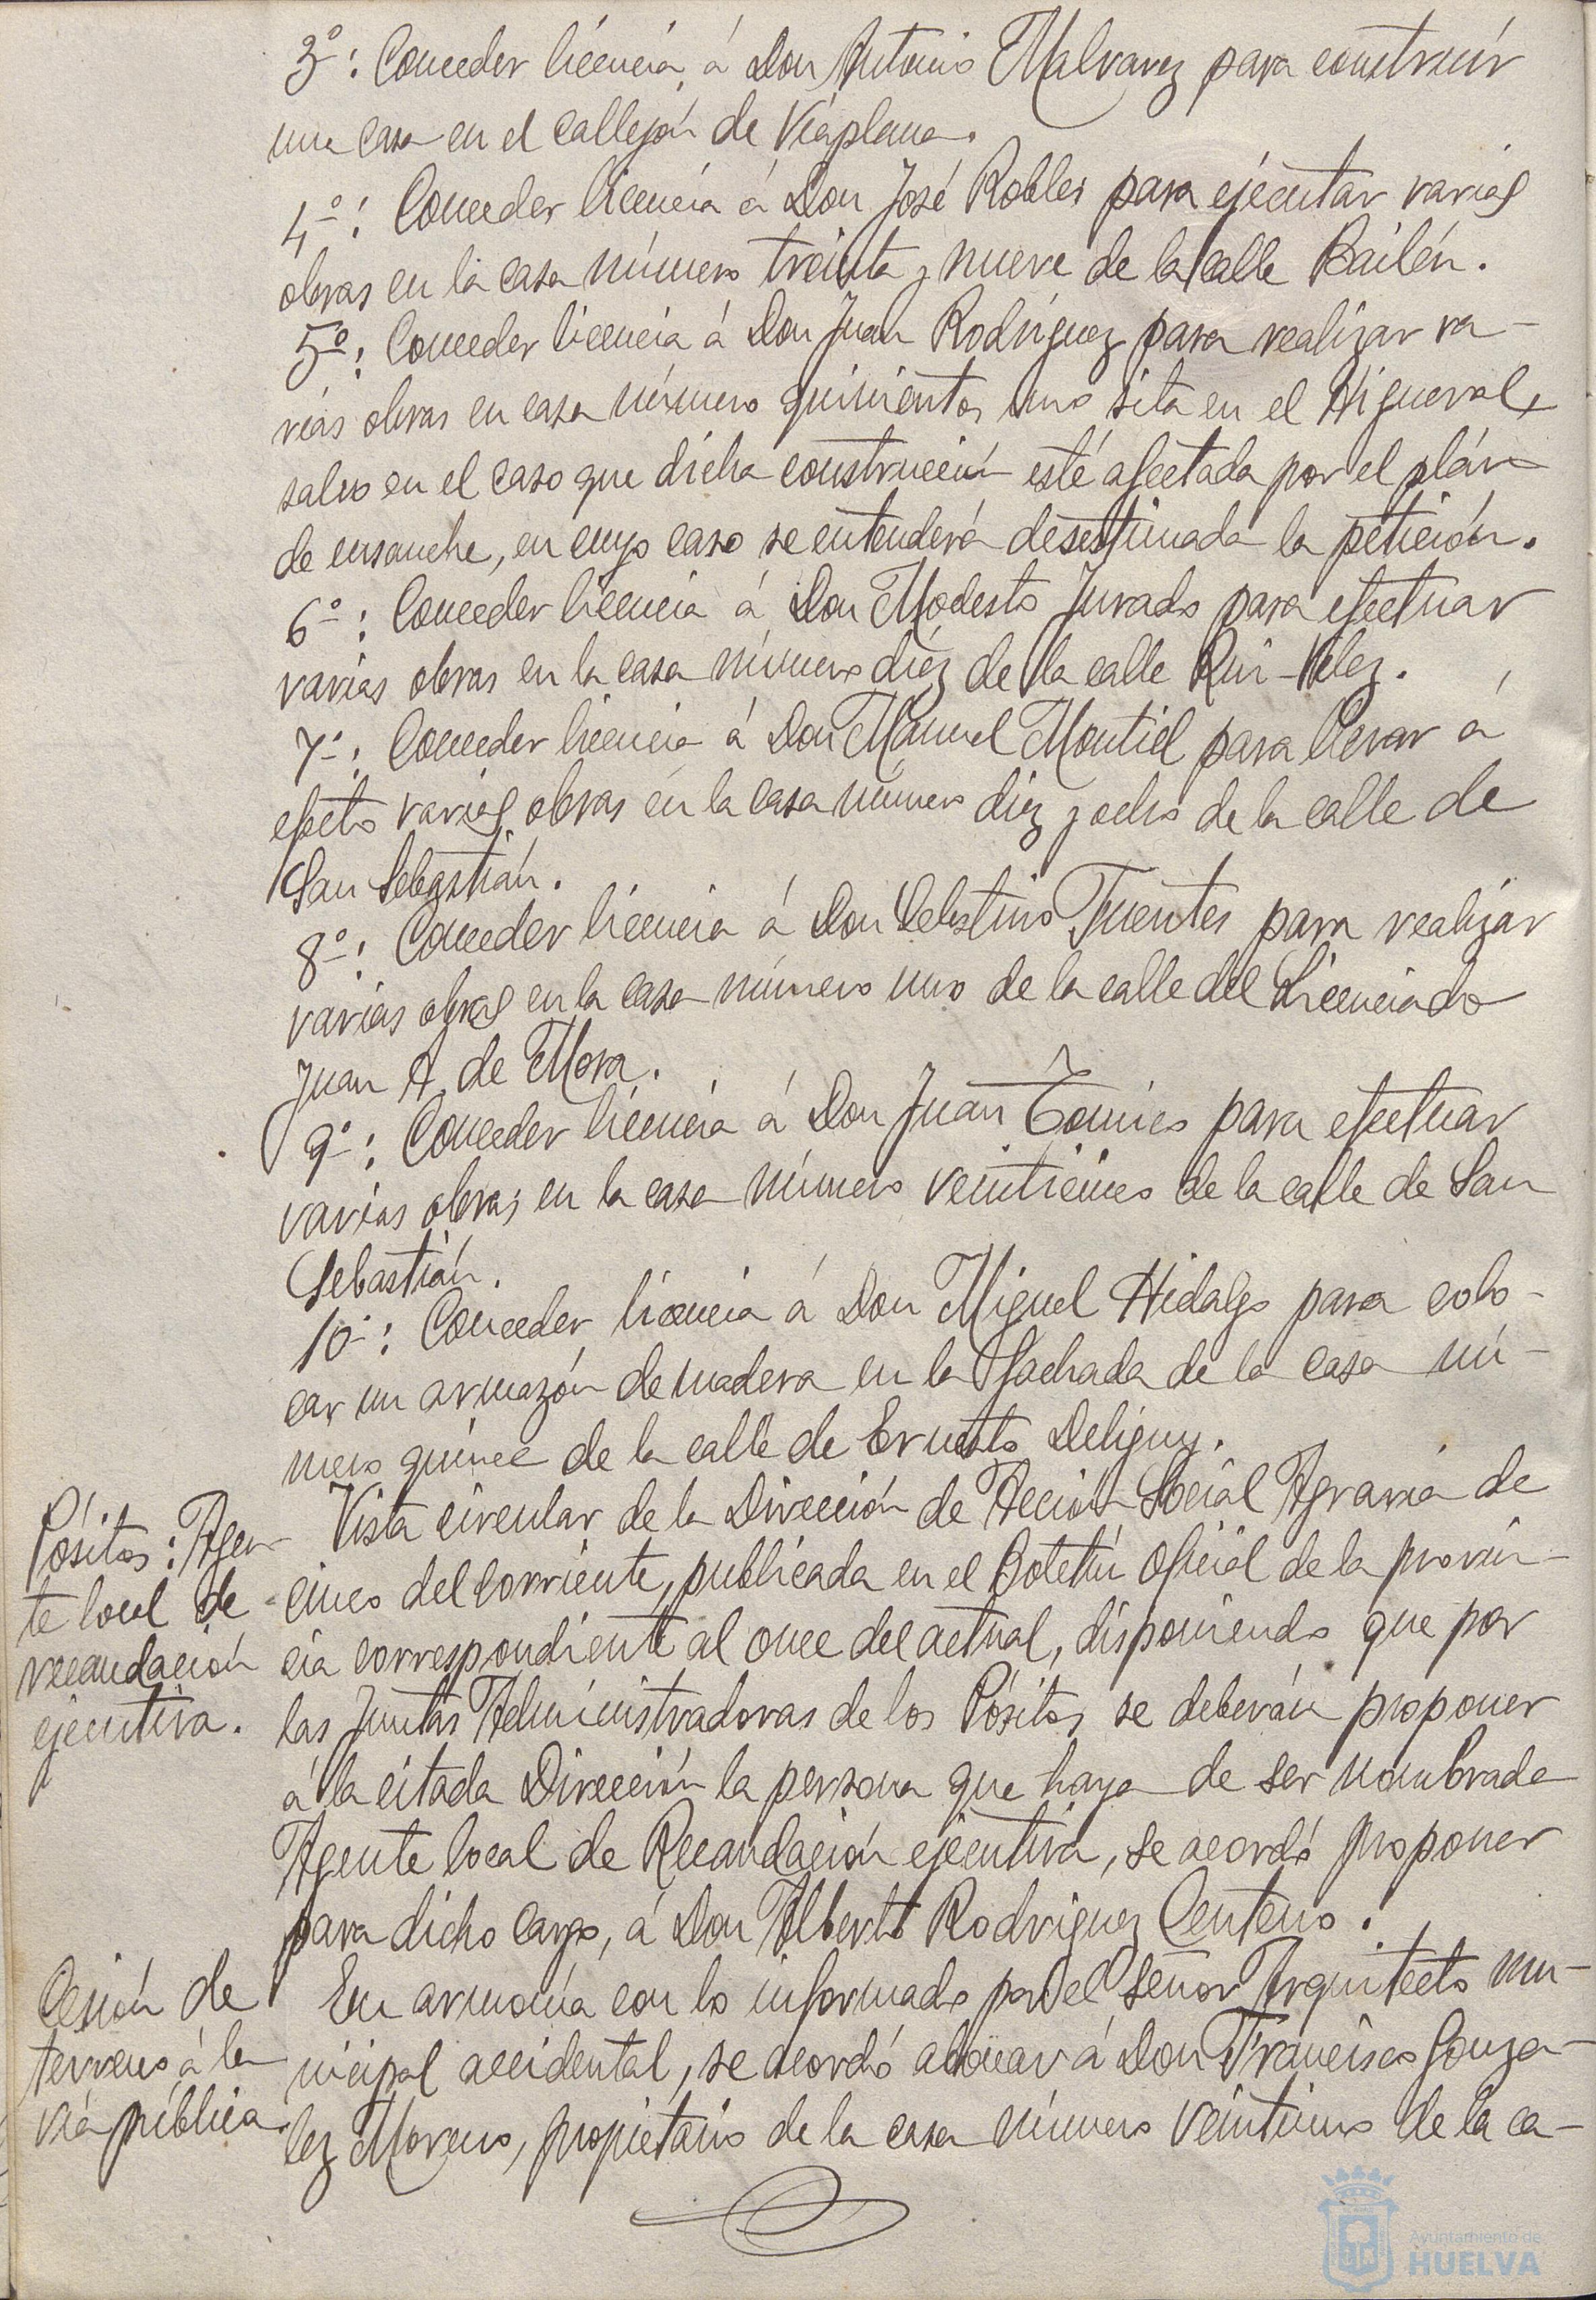 3º: Conceder licencia á Don Antonio Malvarez para construir
una casa en el callejón de Viaplana.
4º: Conceder licencia á Don José Robles para ejecutar varias
obras en la casa número treinta y nueve de la calle Bailén.
5º: Conceder licencia á Don Juan Rodríguez para realizar va-
rias obras en casa número quinientos uno sita en el Higueral,
salvo en el caso que dicha construcción esté afectada por el plán
de ensanche, en cuyo caso se entenderá desestimada la petición.
6º: Conceder licencia á Don Modesto Jurado para efectuar
varias obras en la casa número diéz de la calle Rui-Velez.
7º: Conceder licencia á Don Manuel Montiel para llevar á
efecto varias obras en la casa número diéz y ocho de la calle de
San Sebastián.
8º: Conceder licencia á Don Celestino Fuentes para realizar
varias obras en la casa número uno de la calle del Licenciado
Juan A. de Mora.
9º: Conceder licencia á Don Juan para efectuar
varias obras en la casa número veinticinco de la calle de San
Sebastián.
10º: Conceder licencia á Don Miguel Hidalgo para colo-
car un armazón de madera en la fachada de la casa nú-
mero quince de la calle de Ernesto Deligny.
Pósitos: Agen-
te local de
recaudación
ejecutiva.
Vista circular de la Dirección de Acción Social Agraria de
cinco del corriente, publicada en el Boletín Oficial de la provin-
cia correspondiente al once del actual, disponiendo que por
las Juntas Administradoras de los Pósitos se deberán proponer
á la citada Dirección la persona que haya de ser nombrada
Agente local de Recaudación ejecutiva, se acordó proponer
para dicho cargo, á Don Alberto Rodríguez Centeno.
Cesión de
terreno á la
vía pública.
En armonía con lo informado por el señor Arquitecto mu-
nicipal accidental, se acordó abonar á Don Francisco Gonza-
lez Moreno, propietario de la casa número veintiuno de la ca-
Ayuntamiento de
HUELVA